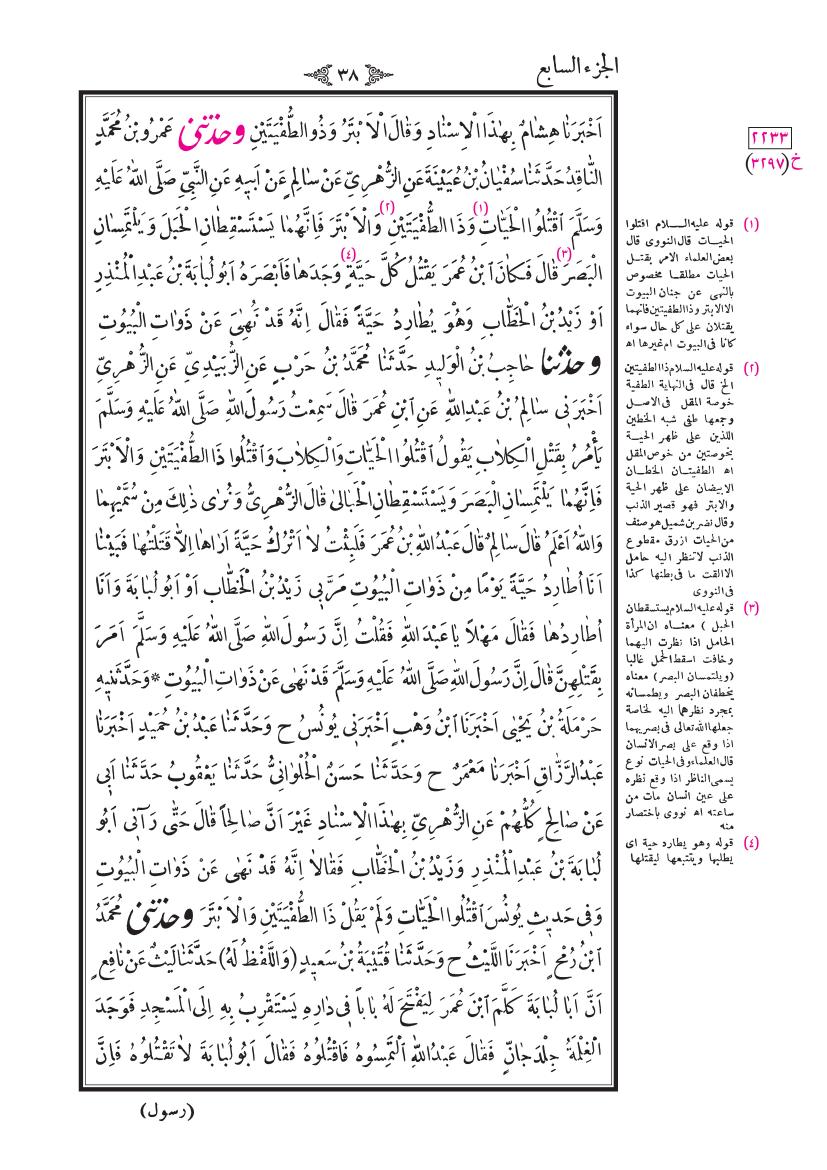 الجزء السابع
٣٨
اَخْبَرَنَا هِشَامٌ بِهٰذَا الْاِسْنَادِ وَقَالَ الْاَبْتَرُ وَذُو الطُّفْيَتَيْنِ وحَدَّثَنِى عَمْرُو بْنُ مُحَمَّدٍ
النَّاقِدُ حَدَّثَنَا سُفْيَانُ بْنُ عُيَيْنَةَ عَنِ الزُّهْرِىِّ عَنْ سَالِمٍ عَنْ اَبيهِ عَنِ النَّبِىِّ صَلَّى اللّٰهُ عَلَيْهِ
وَسَلَّمَ اُقْتُلُوا الْحَيَّاتِ (١) وَذَا الطُّفْيَتَيْنِ (٢) وَالْاَبْتَرَ فَاِنَّهُمَا يَسْتَسْقِطَانِ الْحَبَلَ وَيَلْتَمِسَانِ
الْبَصَرَ (٣) قَالَ فَكَانَ ابْنُ عُمَرَ يَقْتُلُ كُلَّ حَيَّةٍ (٤) وَجَدَهَا فَاَبْصَرَهُ اَبُو لُبَابَةَ بْنُ عَبْدِ الْمُنْذِرِ
اَوْ زَيْدُ بْنُ الْخَطَّابِ وَهْوَ يُطَارِدُ حَيَّةً فَقَالَ اِنَّهُ قَدْ نُهِىَ عَنْ ذَوَاتِ الْبُيُوتِ
وحَدَّثَنَا حَاجِبُ بْنُ الْوَليدِ حَدَّثَنَا مُحَمَّدُ بْنُ حَرْبٍ عَنِ الزُّبَيْدِىِّ عَنِ الزُّهْرِىِّ
اَخْبَرَنِى سَالِمُ بْنُ عَبْدِ اللّٰهِ عَنِ ابْنِ عُمَرَ قَالَ سَمِعْتُ رَسُولَ اللّٰهِ صَلَّى اللّٰهُ عَلَيْهِ وَسَلَّمَ
يَأْمُرُ بِقَتْلِ الْكِلَابِ يَقُولُ اُقْتُلُوا الْحَيَّاتِ وَالْكِلَابَ وَاقْتُلُوا ذَا الطُّفْيَتَيْنِ وَالْاَبْتَرَ
فَاِنَّهُمَا يَلْتَمِسَانِ الْبَصَرَ وَيَسْتَسْقِطَانِ الْحَبَالَى قَالَ الزُّهْرِىُّ وَنُرَى ذٰلِكَ مِنْ سُمَّيْهِمَا
وَاللّٰهُ اَعْلَمُ قَالَ سَالِمٌ قَالَ عَبْدُ اللّٰهِ بْنُ عُمَرَ فَلَبِثْتُ لَا اَتْرُكُ حَيَّةً اَرَاهَا اِلَّا قَتَلْتُهَا فَبَيْنَا
اَنَا اُطَارِدُ حَيَّةً يَوْمًا مِنْ ذَوَاتِ الْبُيُوتِ مَرَّ بِى زَيْدُ بْنُ الْخَطَّابِ اَوْ اَبُو لُبَابَةَ وَاَنَا
اُطَارِدُهَا فَقَالَ مَهْلًا يَا عَبْدَ اللّٰهِ فَقُلْتُ اِنَّ رَسُولَ اللّٰهِ صَلَّى اللّٰهُ عَلَيْهِ وَسَلَّمَ اَمَرَ
بِقَتْلِهِنَّ قَالَ اِنَّ رَسُولَ اللّٰهِ صَلَّى اللّٰهُ عَلَيْهِ وَسَلَّمَ قَدْ نَهَى عَنْ ذَوَاتِ الْبُيُوتِ * وَحَدَّثَنيهِ
حَرْمَلَةُ بْنُ يَحْيَى اَخْبَرَنَا ابْنُ وَهْبٍ اَخْبَرَنِى يُونُسُ ح وَحَدَّثَنَا عَبْدُ بْنُ حُمَيْدٍ اَخْبَرَنَا
عَبْدُ الرَّزَّاقِ اَخْبَرَنَا مَعْمَرٌ ح وَحَدَّثَنَا حَسَنٌ الْحُلْوَانِىُّ حَدَّثَنَا يَعْقُوبُ حَدَّثَنَا اَبِى
عَنْ صَالِحٍ كُلُّهُمْ عَنِ الزُّهْرِىِّ بِهٰذَا الْاِسْنَادِ غَيْرَ اَنَّ صَالِحًا قَالَ حَتَّى رَآنِى اَبُو
لُبَابَةَ بْنُ عَبْدِ الْمُنْذِرِ وَزَيْدُ بْنُ الْخَطَّابِ فَقَالَا اِنَّهُ قَدْ نَهَى عَنْ ذَوَاتِ الْبُيُوتِ
وَفِى حَديثِ يُونُسَ اُقْتُلُوا الْحَيَّاتِ وَلَمْ يَقُلْ ذَا الطُّفْيَتَيْنِ وَالْاَبْتَرَ وحَدَّثَنِى مُحَمَّدُ
ابْنُ رُمْحٍ اَخْبَرَنَا اللَّيْثُ ح وَحَدَّثَنَا قُتَيْبَةُ بْنُ سَعيدٍ (وَاللَّفْظُ لَهُ) حَدَّثَنَا لَيْثٌ عَنْ نَافِعٍ
اَنَّ اَبَا لُبَابَةَ كَلَّمَ ابْنَ عُمَرَ لِيَفْتَحَ لَهُ بَابًا فِى دَارِهِ يَسْتَقْرِبُ بِهِ اِلَى الْمَسْجِدِ فَوَجَدَ
الْغِلْمَةُ جِلْدَ جَانٍّ فَقَالَ عَبْدُ اللّٰهِ اَلْتَمِسُوهُ فَاقْتُلُوهُ فَقَالَ اَبُو لُبَابَةَ لَا تَقْتُلُوهُ فَاِنَّ
(رسول)
٢٢٣٣
خ (٣٢٩٧)
(١) قوله عليه السلام اقتلوا
الحيات قال النووى قال
بعض العلماء الامر بقتل
الحيات مطلقا مخصوص
بالنهى عن جنان البيوت
الا الابتر وذا الطفيتين فانهما
يقتلان على كل حال سواء
كانا فى البيوت ام غيرها اه
(٢) قوله عليه السلام ذا الطفيتين
الخ قال فى النهاية الطفية
خوصة المقل فى الاصل
وجمعها طفى شبه الخطين
اللذين على ظهر الحية
بخوصتين من خوص المقل
اه الطفيتان الخطان
الابيضان على ظهر الحية
والابتر فهو قصير الذنب
وقال نضر بن شميل هو صنف
من الحيات ازرق مقطوع
الذنب لاتنظر اليه حامل
الا القت ما فى بطنها كذا
فى النووى
(٣) قوله عليه السلام يستسقطان
الحبل ) معناه ان المرأة
الحامل اذا نظرت اليهما
وخافت اسقط الحمل غالبا
(ويلتمسان البصر) معناه
يخطفان البصر ويطمسانه
بمجرد نظرهما اليه لخاصة
جعلها الله تعالى فى بصريهما
اذا وقع على بصر الانسان
قال العلماء وفى الحيات نوع
يسمى الناظر اذا وقع نظره
على عين انسان مات من
ساعته اه نووى باختصار
منه
(٤) قوله وهو يطارد حية اى
يطلبها ويتتبعها ليقتلها